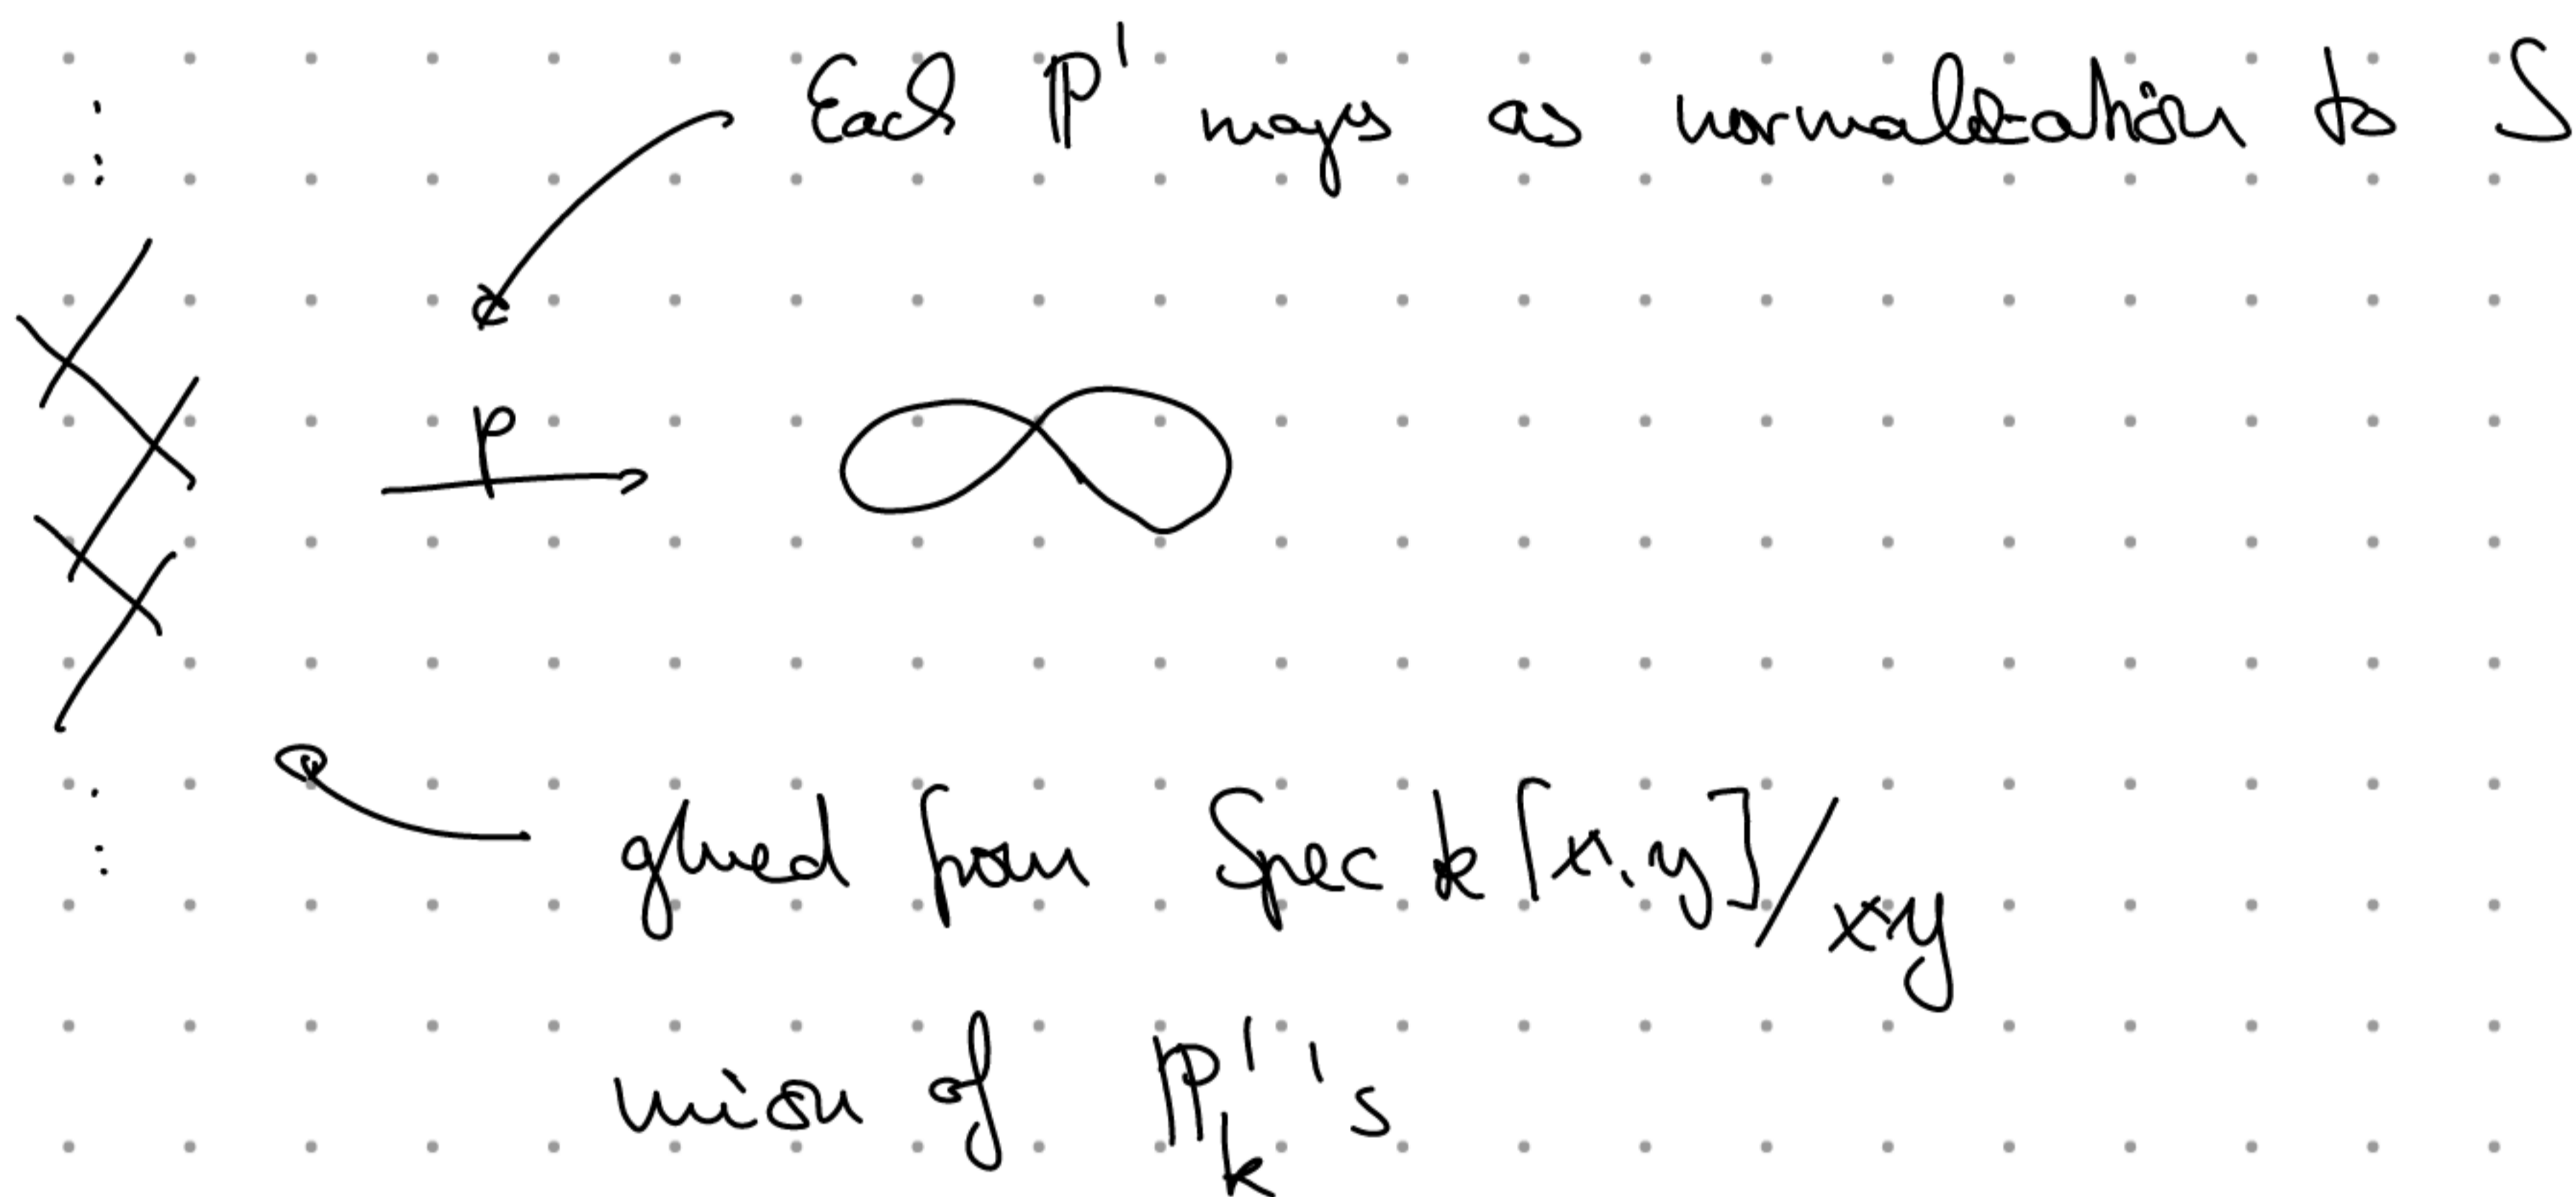 Each ℙ¹ maps as normalization to S
p
glued from Spec k[x,y]/xy
union of ℙ¹_k's